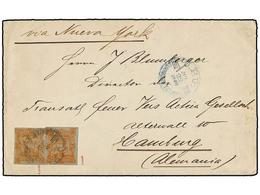 via Nueva York
Herrn J Blumberger
Director der
Transatl. Feuer Vers Actien Gesellsch
alterwall 10
Hamburg
(Alemania)